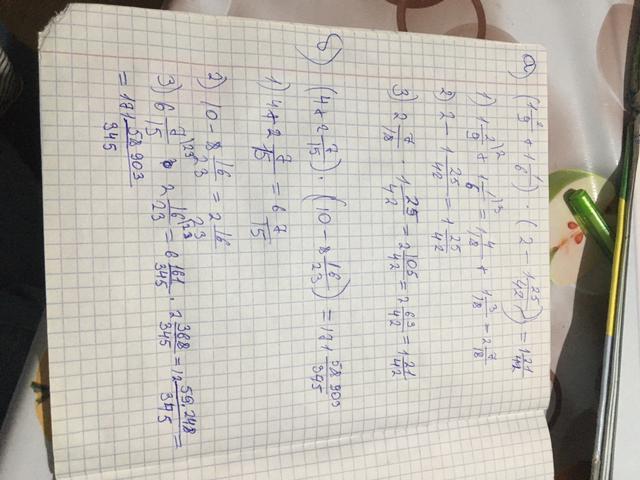 а) (1 2/9 + 1 1/6) · (2 − 1 25/42) = 1 21/42
1) 1 2/9 \2 + 1 1/6 \3 = 1 4/18 + 1 3/18 = 2 7/18
2) 2 − 1 25/42 = 1 25/42
3) 2 7/18 · 1 25/42 = 2 105/42 = 2 63/42 = 1 21/42
б)
(4 + 2 7/15) · (10 − 8 16/23) = 121 58903/345
1) 4 + 2 7/15 = 6 7/15
2) 10 − 8 16/23 = 2 16/23
3) 6 7/15 \23 · 2 16/23 \23 = 6 161/345 · 2 368/345 = 12 59.248/345 =
= 121 58903/345